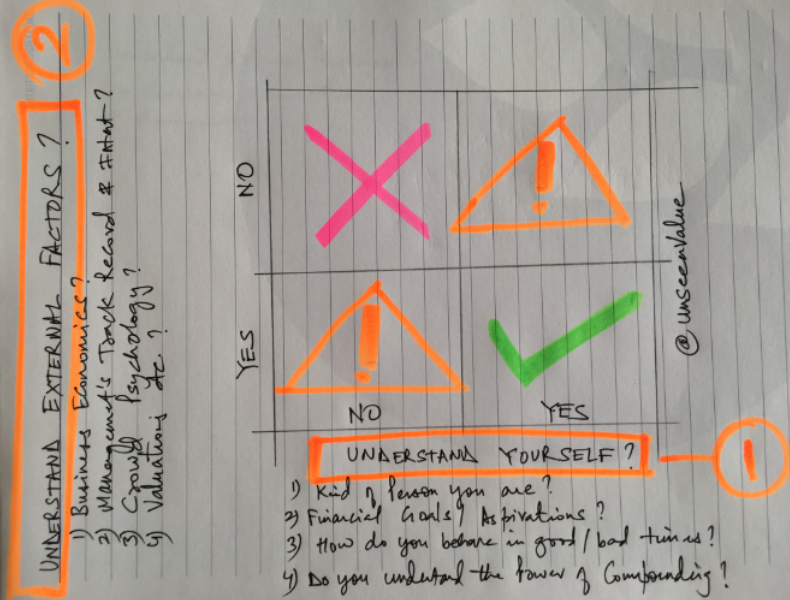 2
UNDERSTAND EXTERNAL FACTORS?
1) Business Economics?
2) Management's Track Record & Intent?
3) Crowd Psychology?
4) Valuations etc.?
NO
!
!
YES
!
NO
YES
@unseenvalue
UNDERSTAND YOURSELF?
1
1) Kind of Person you are?
2) Financial Goals/ Aspirations?
3) How do you behave in good/bad times?
4) Do you understand the Power of Compounding?